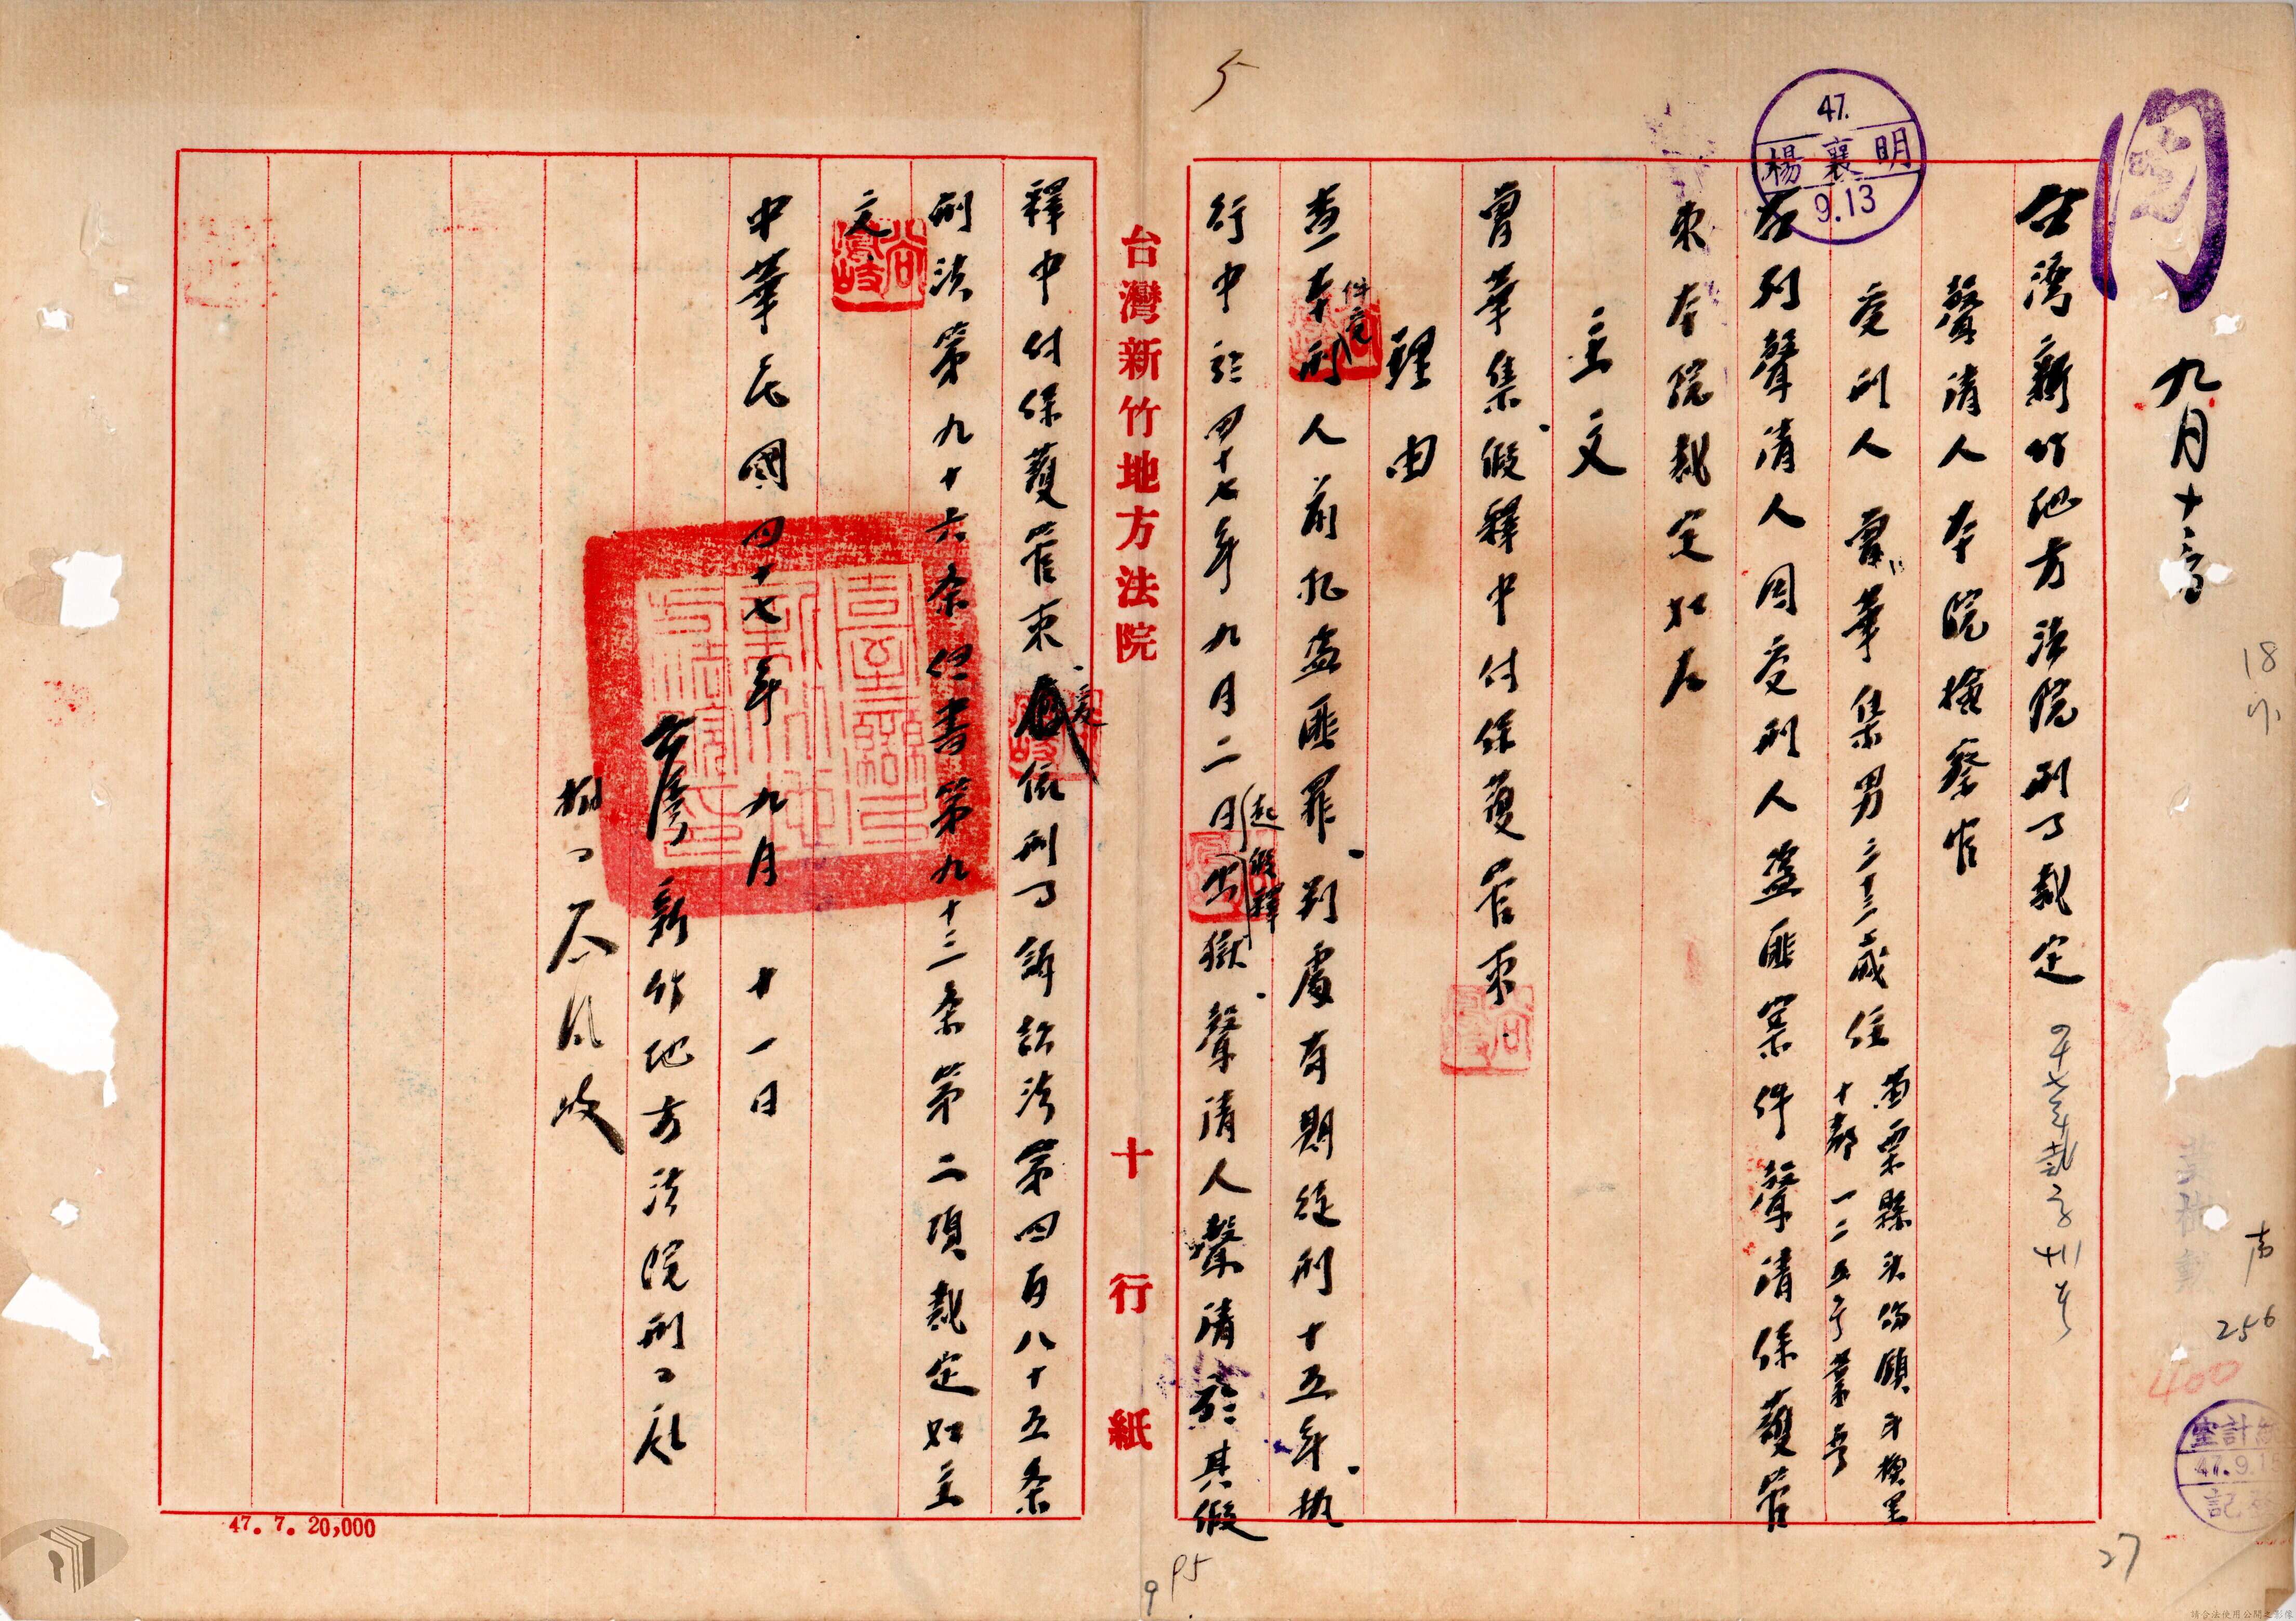 九月十二、
台灣新竹地方法院刑事裁定 四十七年裁字卅一号
聲請人 本院檢察官
受刑人 曾華集 男 三十三歲 住
苗栗縣頭份鎮斗換里
十鄰一二五号業
右列聲請人因受刑人盜匪案件聲請保護管
束本院裁定如左
主文
曾華集假釋中付保護管束
理由
查本件受刑人前犯盜匪罪判處有期徒刑十五年執
行中於四十七年九月二日起假釋出獄聲請人聲請於其假
台灣新竹地方法院
十行紙
釋中付保護管束爰依刑事訴訟法第四百八十五条
刑法第九十六条但書第九十三条第二項裁定如主
文
中華民國四十七年九月十一日
台灣新竹地方法院刑事庭
推事
47. 7. 20,000
47.
楊襄明
9.13
5
18
256
400
47.9.15
27
95
9
請合法使用公開之影像